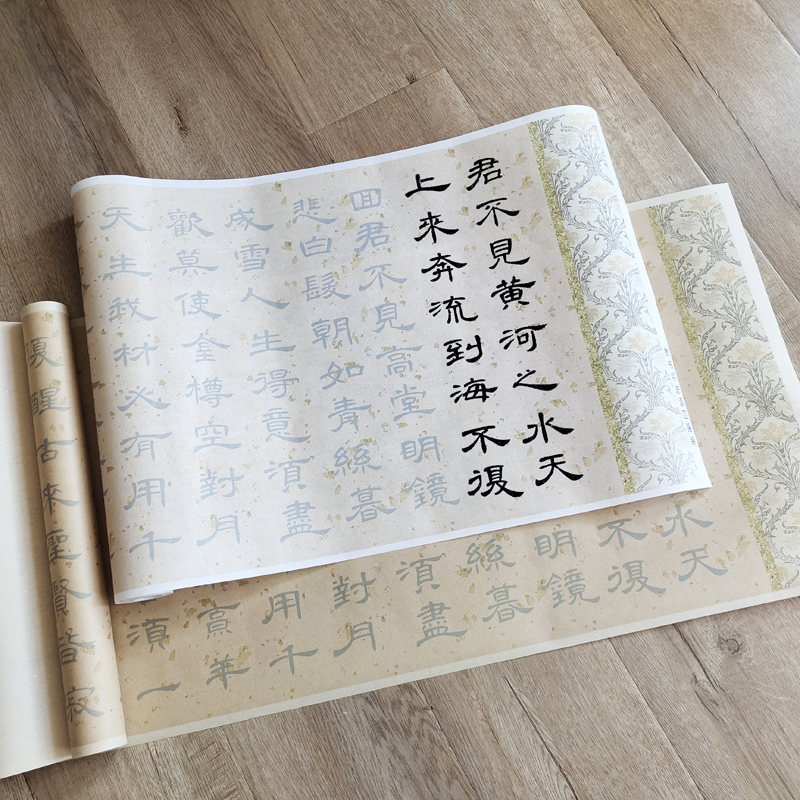 君不見黄河之水天
上來奔流到海不復
回君不見高堂明鏡
悲白髮朝如青絲暮
成雪人生得意須盡
歡莫使金樽空對月
天生我材必有用千
水天
不復
明鏡
絲暮
須盡
對月
用千
烹羊
須一
復醒古來聖賢皆寂